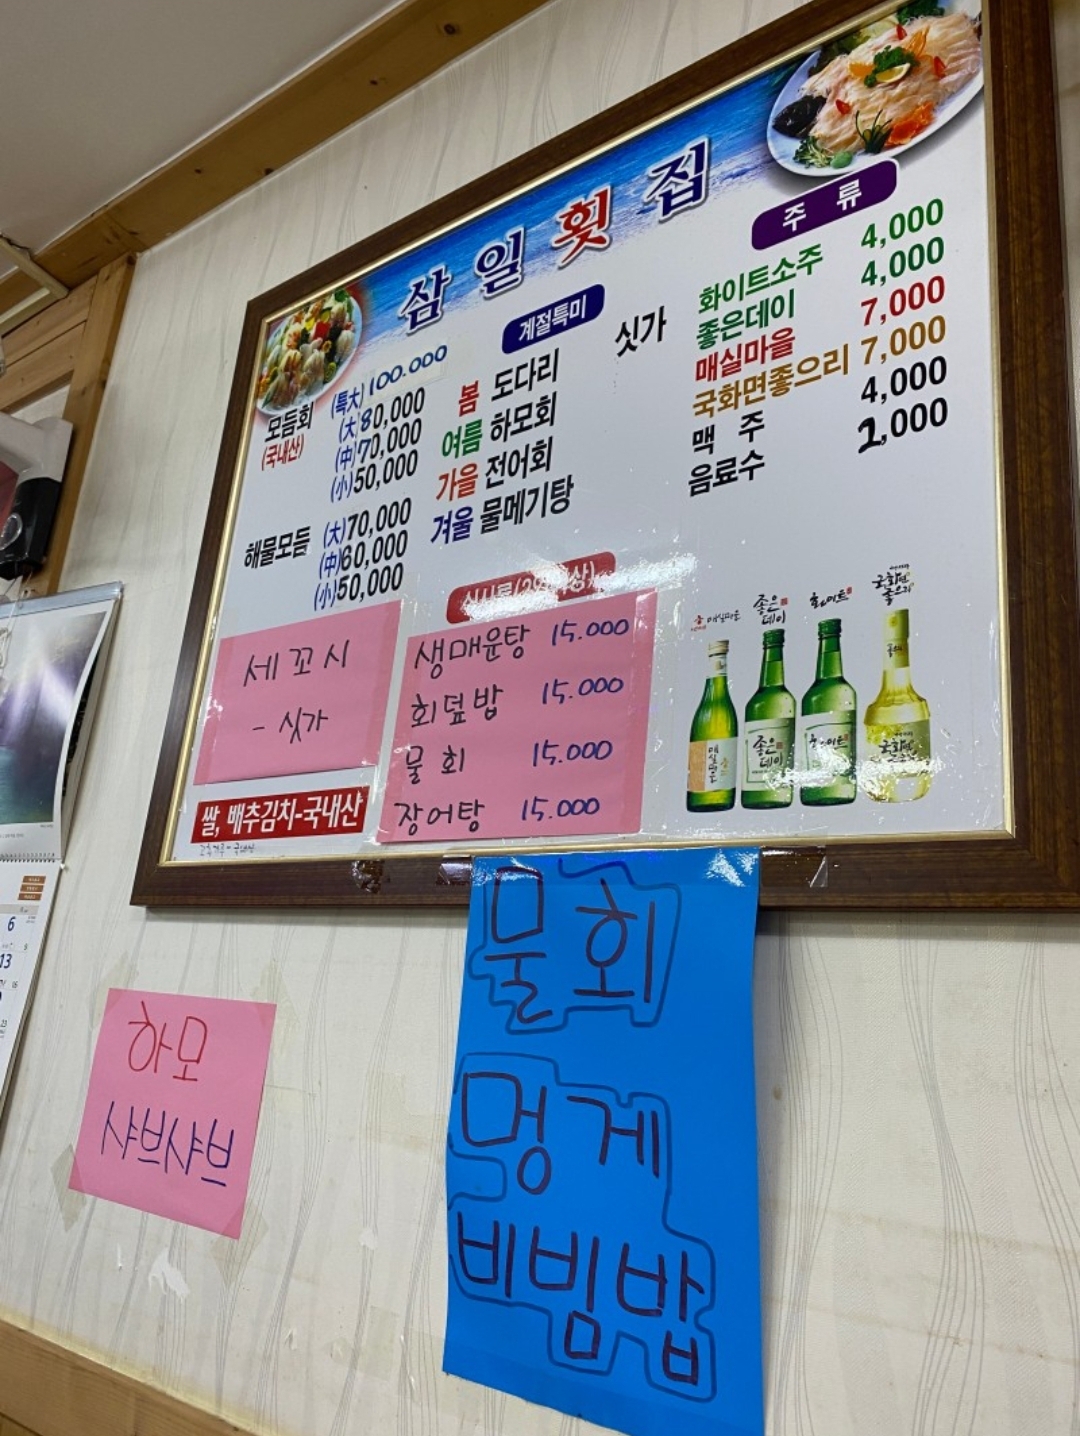 삼일횟집
모듬회 (특大) 100.000
(국내산) (大) 80,000
(中) 70,000
(小) 50,000
해물모듬 (大) 70,000
(中) 60,000
(小) 50,000
계절특미
봄 도다리 싯가
여름 하모회
가을 전어회
겨울 물메기탕
주류
화이트소주 4,000
좋은데이 4,000
매실마을 7,000
국화면좋으리 7,000
맥주 4,000
음료수 2,000
세꼬시
- 싯가
생매운탕 15.000
회덮밥 15.000
물회 15.000
장어탕 15.000
쌀, 배추김치-국내산
매실마을
좋은데이
화이트
국화면좋으리
좋은데이
물회
멍게
비빔밥
하모
샤브샤브
6
13